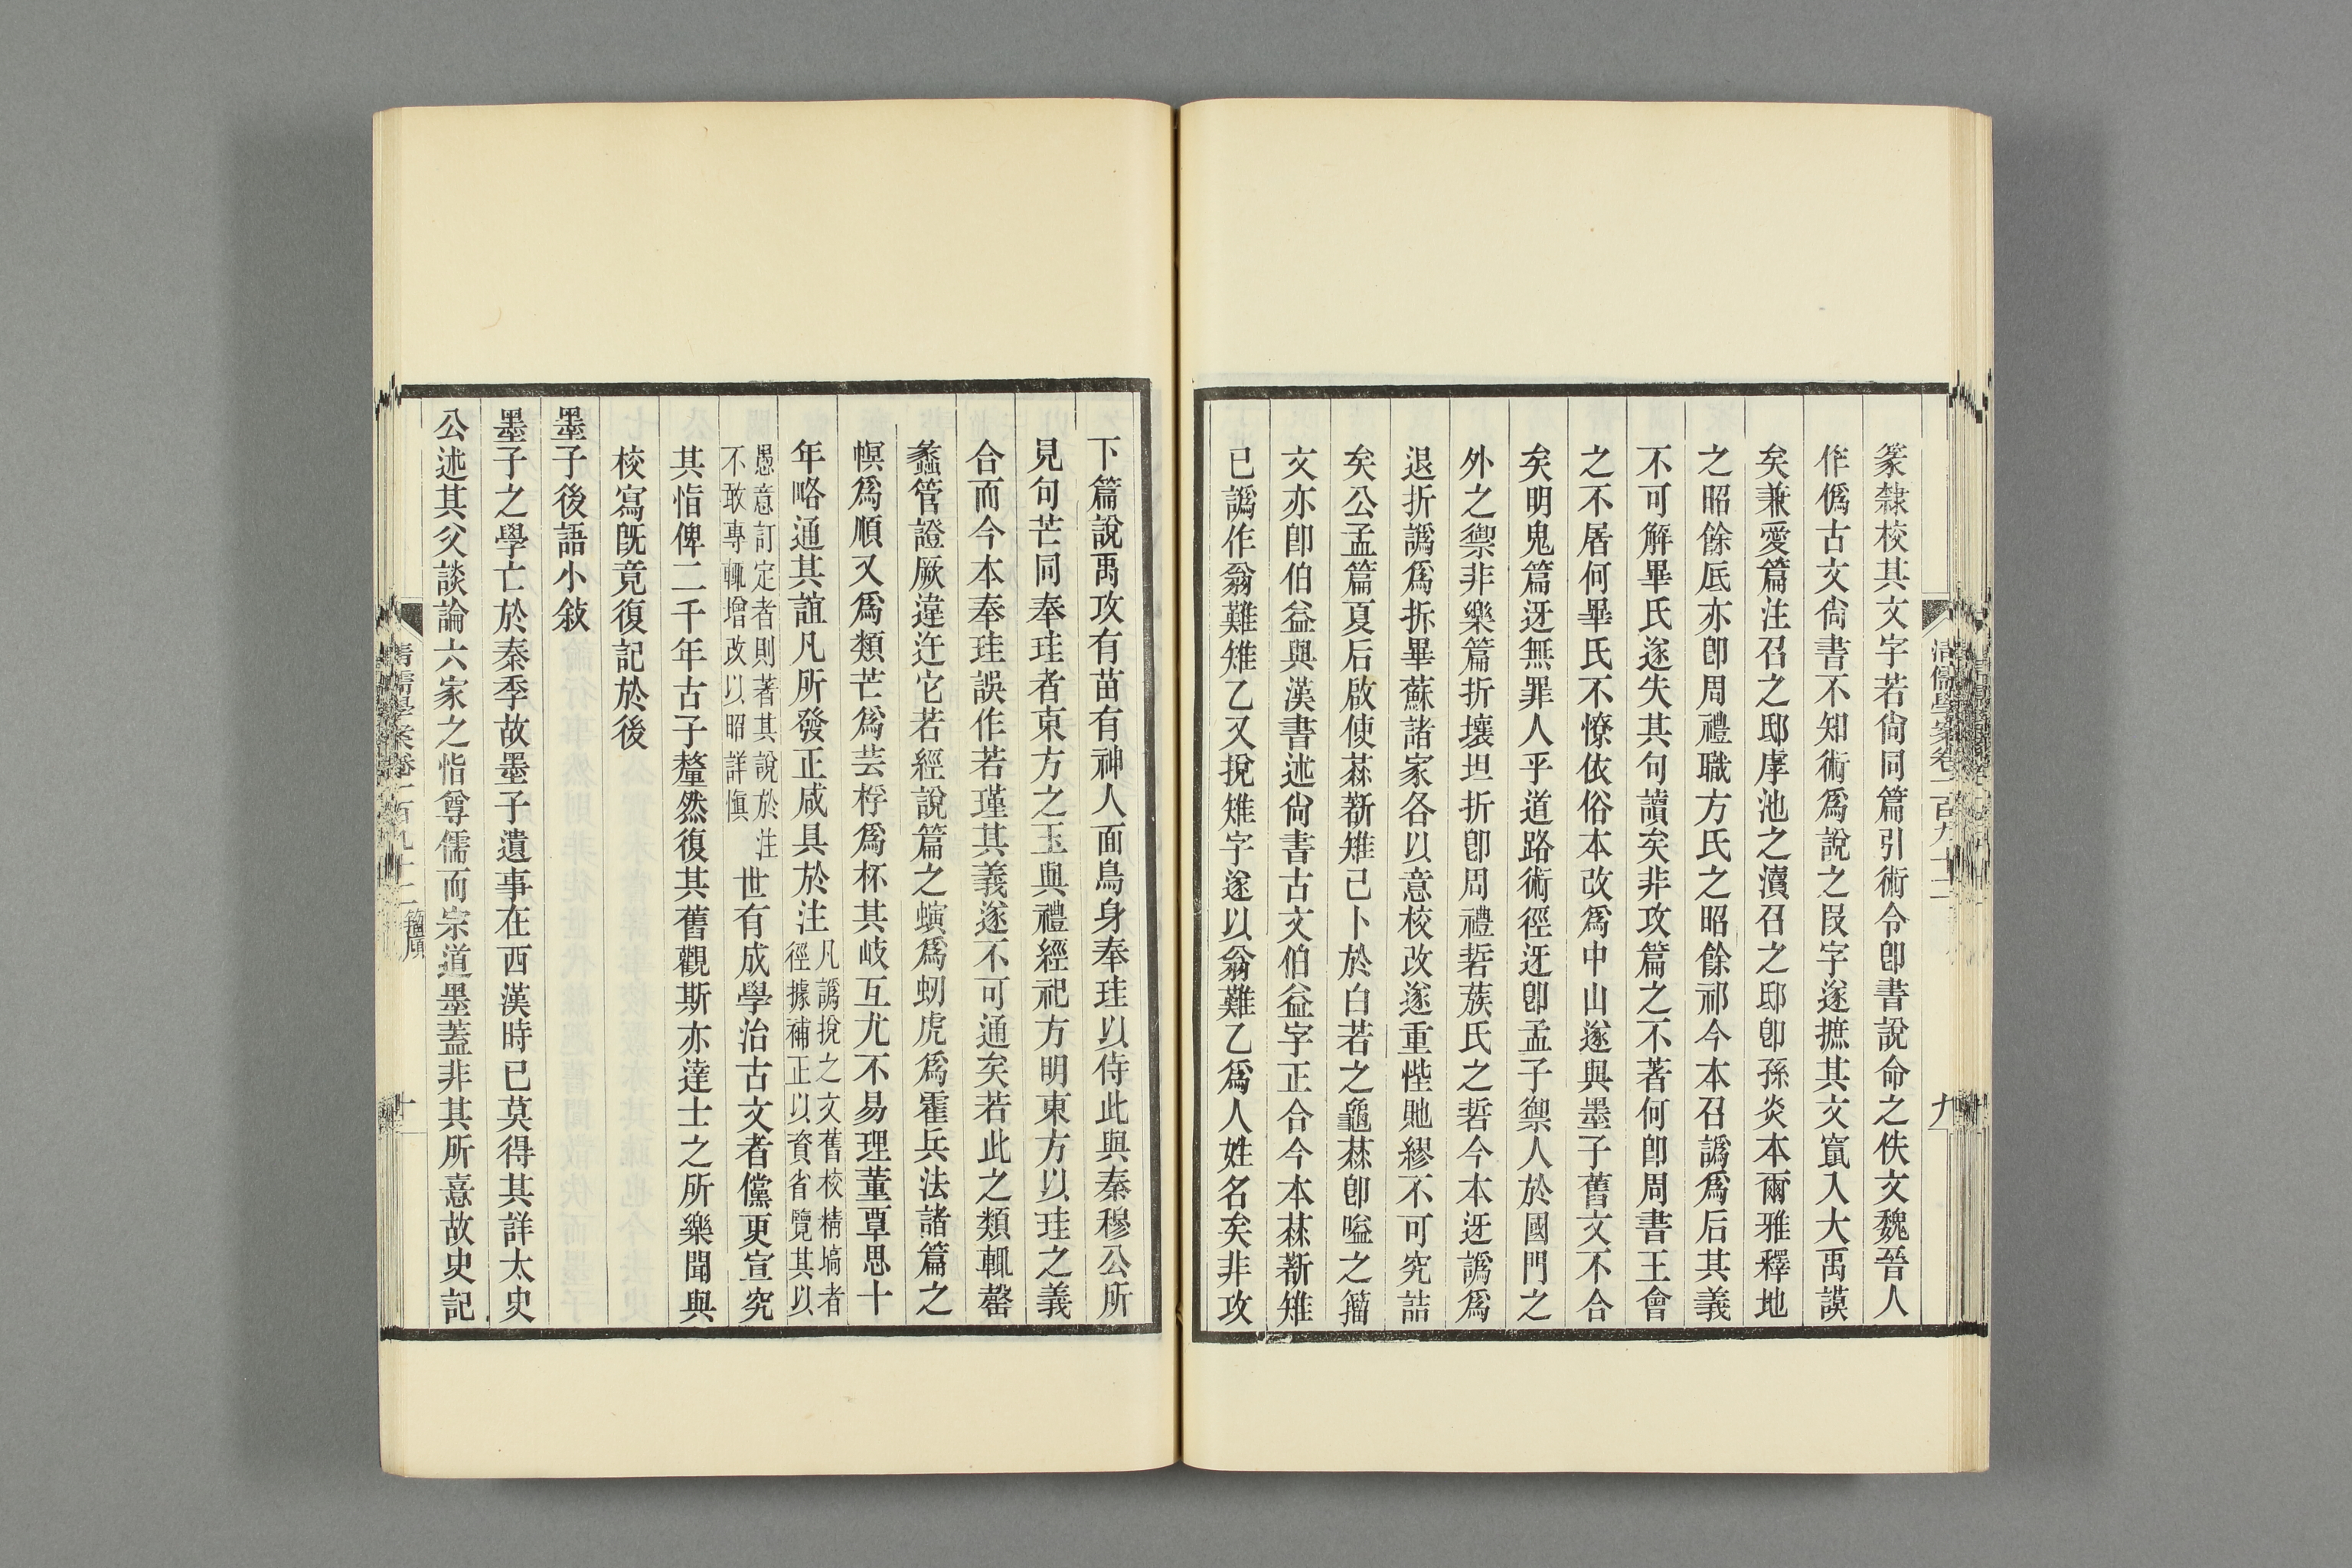 篆隸校其文字若尙同篇引術令卽書說命之佚文魏晉人
作僞古文尙書不知術爲說之叚字遂摭其文竄入大禹謨
矣兼愛篇注召之邸虖池之瀆召之邸卽孫炎本爾雅釋地
之昭餘厎亦卽周禮職方氏之昭餘祁今本召譌爲后其義
不可解畢氏遂失其句讀矣非攻篇之不著何卽周書王會
之不屠何畢氏不憭依俗本改爲中山遂與墨子舊文不合
矣明鬼篇迓無罪人乎道路術徑迓卽孟子禦人於國門之
外之禦非樂篇折壞坦折卽周禮硩蔟氏之硩今本迓譌爲
退折譌爲拆畢蘇諸家各以意校改遂重悂貤繆不可究詰
矣公孟篇夏后啟使菻蘄雉已卜於白若之龜菻卽嗌之籀
文亦卽伯益與漢書述尙書古文伯益字正合今本菻蘄雉
已譌作翁難雉乙又捝雉字遂以翁難乙爲人姓名矣非攻
下篇說禹攻有苗有神人面鳥身奉珪以侍此與秦穆公所
見句芒同奉珪者東方之玉與禮經祀方明東方以珪之義
合而今本奉珪誤作若瑾其義遂不可通矣若此之類輒罄
蠡管證厥違迕它若經說篇之螾爲蚓虎爲霍兵法諸篇之
幎爲順又爲類芒爲芸桴爲杯其岐互尤不易理董覃思十
年略通其誼凡所發正咸具於注凡譌捝之文舊校精塙者
徑據補正以資省覽其以
愚意訂定者則著其說於注
不敢專輒增改以昭詳愼世有成學治古文者儻更宣究
其恉俾二千年古子釐然復其舊觀斯亦達士之所樂聞與
校寫旣竟復記於後
墨子後語小敍
墨子之學亡於秦季故墨子遺事在西漢時已莫得其詳太史
公述其父談論六家之恉尊儒而宗道墨蓋非其所憙故史記
清儒學案卷一百九十二
九
清儒學案卷一百九十二
籀廎
十